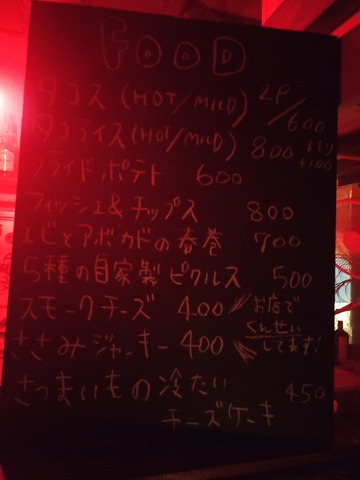 FOOD
タコス (HOT/MILD) 2P/600
タコライス (HOT/MILD) 800 +100
フライドポテト 600
フィッシュ&チップス 800
エビとアボカドの春巻 700
5種の自家製ピクルス 500
スモークチーズ 400 お店で
くんせい
ささみジャーキー 400 してます!
さつまいもの冷たい 450
チーズケーキ